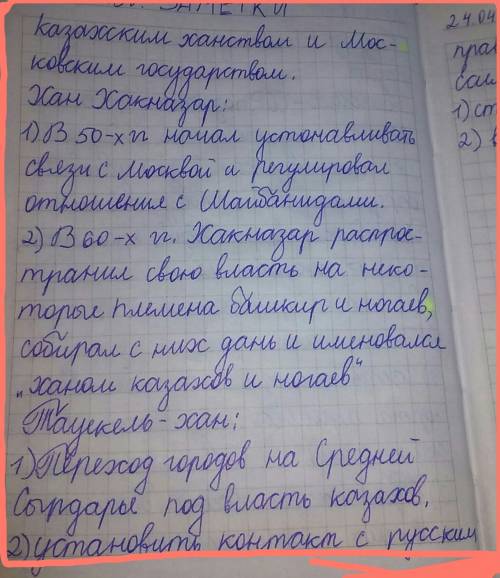 ЗАМЕТКИ
казахским ханством и Мос-
ковским государством.
Хан Хакназар:
1) В 50-х гг начал устонавливать
связи с Москвой и регулировал
отношения с Шайбанидами.
2) В 60-х гг. Хакназар распрос-
транил свою власть на неко-
торые племена башкир и ногаев,
собирал с них дань и именовался
„ханом казахов и ногаев“
Тауекель-хан:
1) Переход городов на Средней
Сырдарье под власть казахов.
2) установить контакт с русским
24.04
1) ст
2)